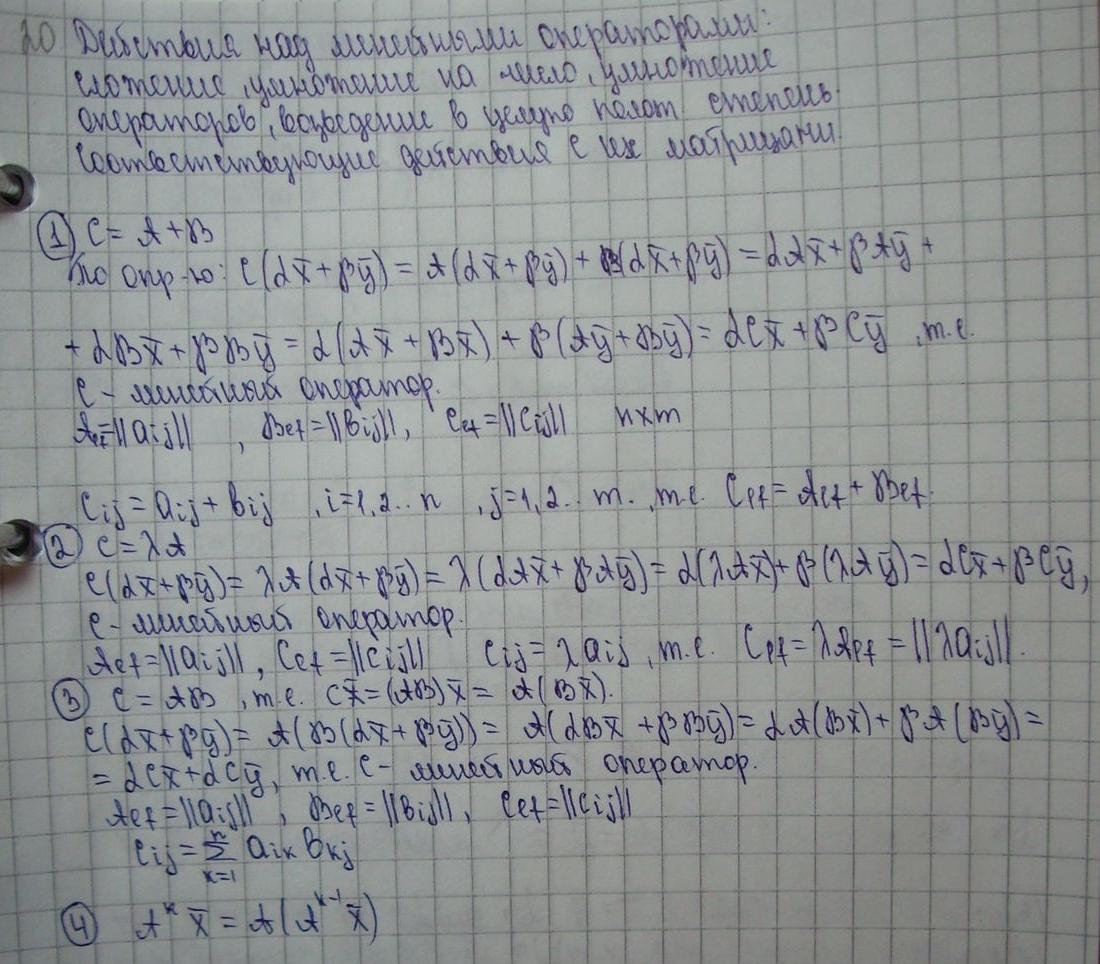 20 Действия над линейными операторами:
сложение, умножение на число, умножение
операторов, возведение в целую полож степень.
Соответствующие действия с их матрицами.
① C = A + B
По опр-ю: C(αx̄ + βȳ) = A(αx̄ + βȳ) + B(αx̄ + βȳ) = αAx̄ + βAȳ +
+ αBx̄ + βBȳ = α(Ax̄ + Bx̄) + β(Aȳ + Bȳ) = αCx̄ + βCȳ, т.е.
C - линейный оператор.
Aef = ||aij||, Bef = ||bij||, Cef = ||cij|| n×m
Cij = aij + bij, i=1,2.. n, j=1,2.. m. т.е. Cef = Aef + Bef.
② C = λA
C(αx̄ + βȳ) = λA(αx̄ + βȳ) = λ(αAx̄ + βAȳ) = α(λAx̄) + β(λAȳ) = αCx̄ + βCȳ,
C - линейный оператор.
Aef = ||aij||, Cef = ||cij|| Cij = λaij, т.е. Cef = λAef = ||λaij||.
③ C = AB, т.е. Cx̄ = (AB)x̄ = A(Bx̄).
C(αx̄ + βȳ) = A(B(αx̄ + βȳ)) = A(αBx̄ + βBȳ) = αA(Bx̄) + βA(Bȳ) =
= αCx̄ + αCȳ, т.е. C - линейный оператор.
Aef = ||aij||, Bef = ||bij||, Cef = ||cij||
Cij = Σⁿₖ₌₁ aiк bкj
④ Aᵏ x̄ = A(Aᵏ⁻¹ x̄)